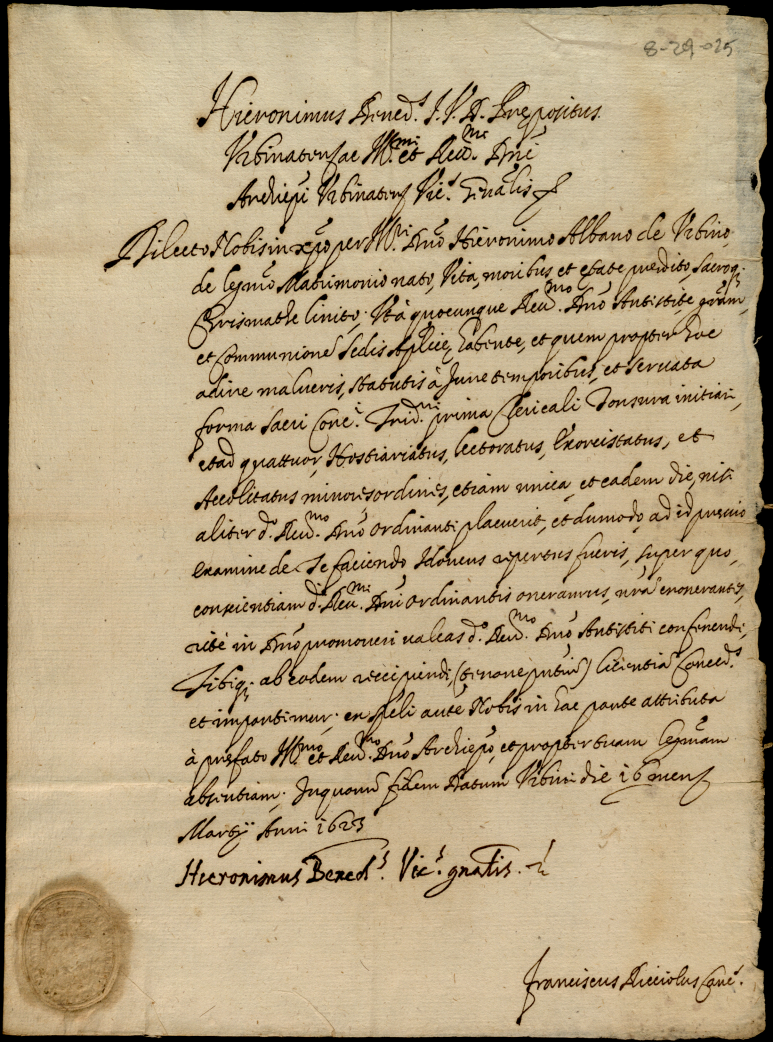 8-29-025
Hieronimus Bened.s I.V.D. Prępositus
Vrbinaten ac Ill.mi et Reu.mi Dni
Archiepi Vrbinaten Vic.s Gnalis
Dilecto Nobis in xpo per Ill.ri Dno Hieronimo Albano de Vrbino,
de legmo Matrimonio nato, Vita, moribus et ętate predito Sacroq;
Chrismathe linito; Vt à quocunque Reu.mo Dno Antistite gram,
et Communione Sedis Aplice habente, et quem propter hoc
adire malueris, statutis à Iure temporibus, et seruata
forma Sacri Conc. Trid.ni prima Clericali Tonsura initiari,
et ad quattuor, Hostiariatus, lectoratus, Exorcistatus, et
Accolitatus minores ordines, etiam unica, et eadem die, nisi
aliter d.o Reu.mo Dno ordinanti placuerit, et dumodo, ad id preuio
examine de Te faciendo Idoneus repertus fueris, super quo,
conscientiam d. Reu.mi Dni ordinantis oneramus, nrà exonerantes,
ritè in Dno promoueri ualeas d.o Reu.mo Dno Antistiti conferendi,
Tibiq; ab eodem recipiendi, (tenore pntiu) licientia Conced.s
et impartimur; ex fteli aute Nobis in hac parte attributa
à prefato Ill.mo et Reu.mo Dno Archiepo, et propter tuam legmam
absentiam; In quorum fidem Datum Vrbini die 16 mens
Martij Anni 1623
Hieronimus Bened.s Vic.s gnalis
Franciscus Ricciolus Canc.s